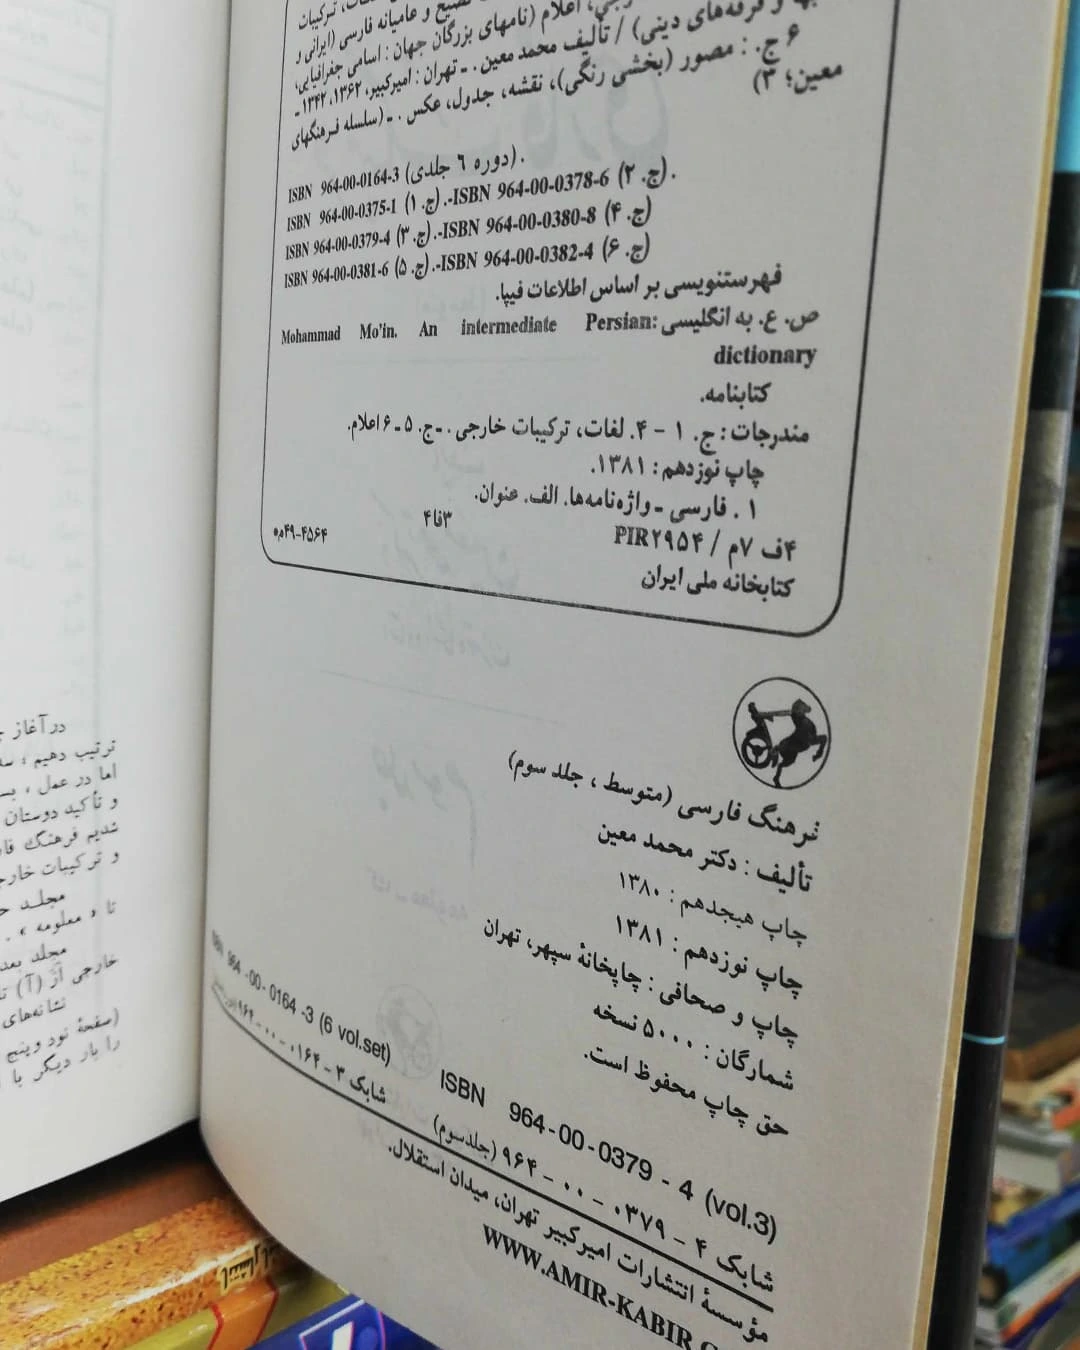 فصیح و عامیانه فارسی (ایرانی و
اعلام (نامهای بزرگان جهان : اسامی جغرافیایی،
و فرقه‌های دینی) / تألیف محمد معین . ـ تهران : امیرکبیر، ۱۳۶۲، ۱۳۴۲ ـ
۶ ج. : مصور (بخشی رنگی)، نقشه، جدول، عکس . ـ (سلسله فرهنگهای
معین؛ ۳)
ISBN 964-00-0164-3 (دوره ٦ جلدی).
ISBN 964-00-0375-1 (ج. ۱).-ISBN 964-00-0378-6 (ج. ۲).
ISBN 964-00-0379-4 (ج. ۳).-ISBN 964-00-0380-8 (ج. ۴)
ISBN 964-00-0381-6 (ج. ۵).-ISBN 964-00-0382-4 (ج. ۶)
فهرستنویسی بر اساس اطلاعات فیپا.
ص. ع. به انگلیسی: Mohammad Mo'in. An intermediate Persian
dictionary
کتابنامه.
مندرجات : ج. ۱ - ۴. لغات، ترکیبات خارجی . ـ ج. ۵ ـ ۶ اعلام.
چاپ نوزدهم : ۱۳۸۱.
۱ . فارسی ـ واژه‌نامه‌ها. الف. عنوان.
۴ف ۷م / PIR۲۹۵۴ ۴فا۳
کتابخانه ملی ایران ۴۵۶۴-۴۹م
فرهنگ فارسی (متوسط ، جلد سوم)
تألیف : دکتر محمد معین
چاپ هیجدهم : ۱۳۸۰
چاپ نوزدهم : ۱۳۸۱
چاپ و صحافی : چاپخانهٔ سپهر، تهران
شمارگان : ۵۰۰۰ نسخه
حق چاپ محفوظ است.
ISBN 964-00-0164-3 (6 vol.set)
شابک ۳ - ۰۱۶۴ - ۰۰ - ۹۶۴
ISBN 964-00-0379-4 (vol.3)
شابک ۴ - ۰۳۷۹ - ۰۰ - ۹۶۴ (جلدسوم)
مؤسسهٔ انتشارات امیرکبیر تهران، میدان استقلال.
WWW.AMIR-KABIR.
درآغاز
ترتیب دهیم ،
اما در عمل ،
و تأکید دوستان
شدیم فرهنگ
و ترکیبات
مجلد
تا « معلومه » .
مجلد بعد
خارجی از (آ)
نشانه‌های
(صفحهٔ نود و پنج
را بار دیگر با
انتشارات